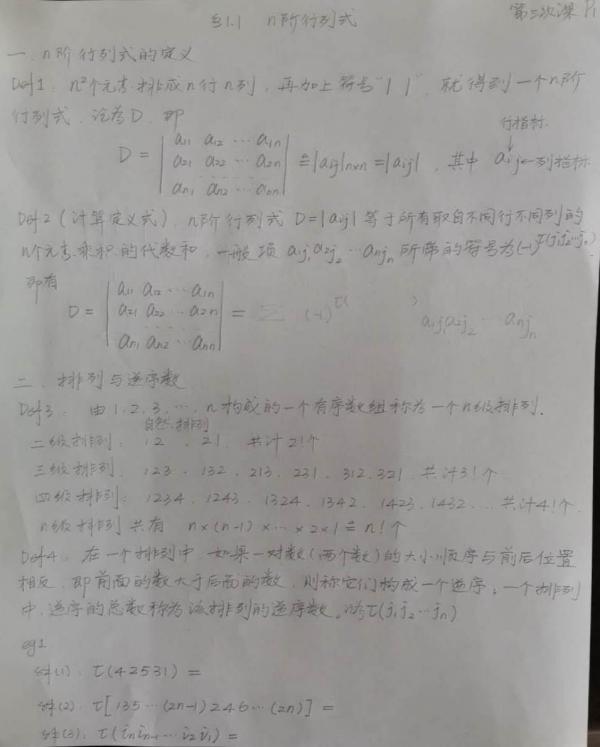 §1.1 n阶行列式
第三次课 P1
一、n阶行列式的定义
Def1: n²个元素排成n行n列,再加上符号"| |",就得到一个n阶
行列式,记为D,即
行指标
D = | a11 a12 … a1n | ≜ |aij|n×n = |aij|, 其中 aij ←列指标
| a21 a22 … a2n |
| an1 an2 … ann |
Def2 (计算定义式) n阶行列式 D=|aij| 等于所有取自不同行不同列的
n个元素乘积的代数和,一般项 a1j1 a2j2 … anjn 所带的符号为(-1)^τ(j1j2…jn)
即有
D = | a11 a12 … a1n | = Σ (-1)^τ( ) a1j1 a2j2 … anjn
| a21 a22 … a2n |
| an1 an2 … ann |
二、排列与逆序数
Def3: 由1,2,3,…,n构成的一个有序数组称为一个n级排列.
自然排列
二级排列: 12 、21. 共计2!个
三级排列: 123、132、213、231、312、321. 共计3!个
四级排列: 1234、1243、1324、1342、1423、1432… 共计4!个.
n级排列共有 n×(n-1)×…×2×1 ≜ n!个
Def4. 在一个排列中,如果一对数(两个数)的大小顺序与前后位置
相反,即前面的数大于后面的数,则称它们构成一个逆序;一个排列
中,逆序的总数称为该排列的逆序数。为τ(j1j2…jn)
eg1
(1). τ(42531) =
(2). τ[135…(2n-1)246…(2n)] =
(3). τ(inin-1…i2i1) =